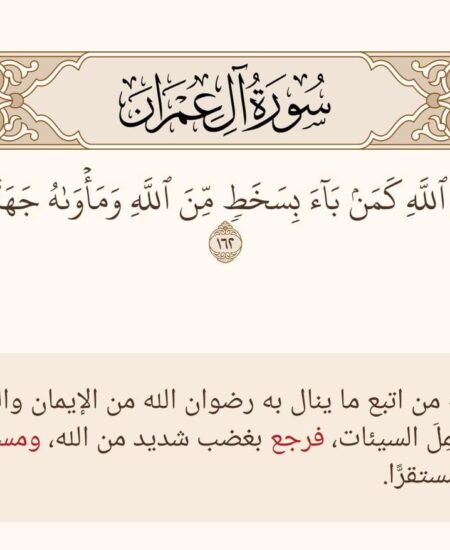 سُورَةُ آلِ عِمْرَانَ
ٱللَّهِ كَمَنۢ بَآءَ بِسَخَطٖ مِّنَ ٱللَّهِ وَمَأۡوَىٰهُ
١٦٢
من اتبع ما ينال به رضوان الله من الإيمان
السيئات، فرجع بغضب شديد من الله،
مستقرًّا.